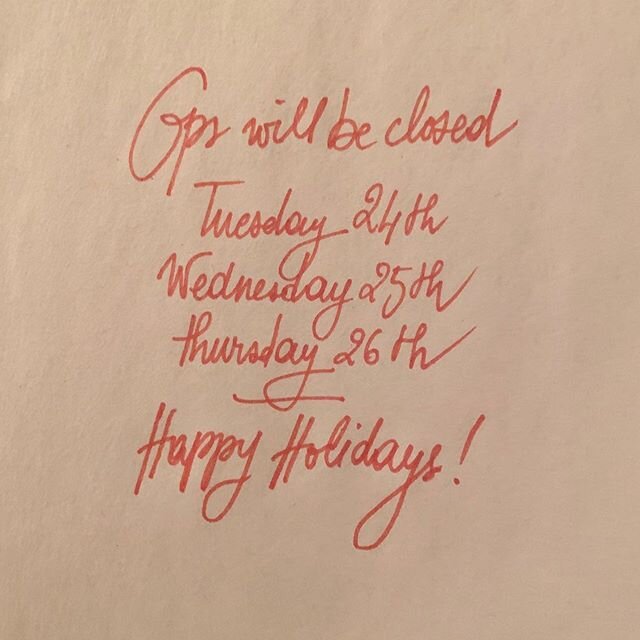 Gps will be closed
Tuesday 24th
Wednesday 25th
thursday 26th
Happy Holidays!